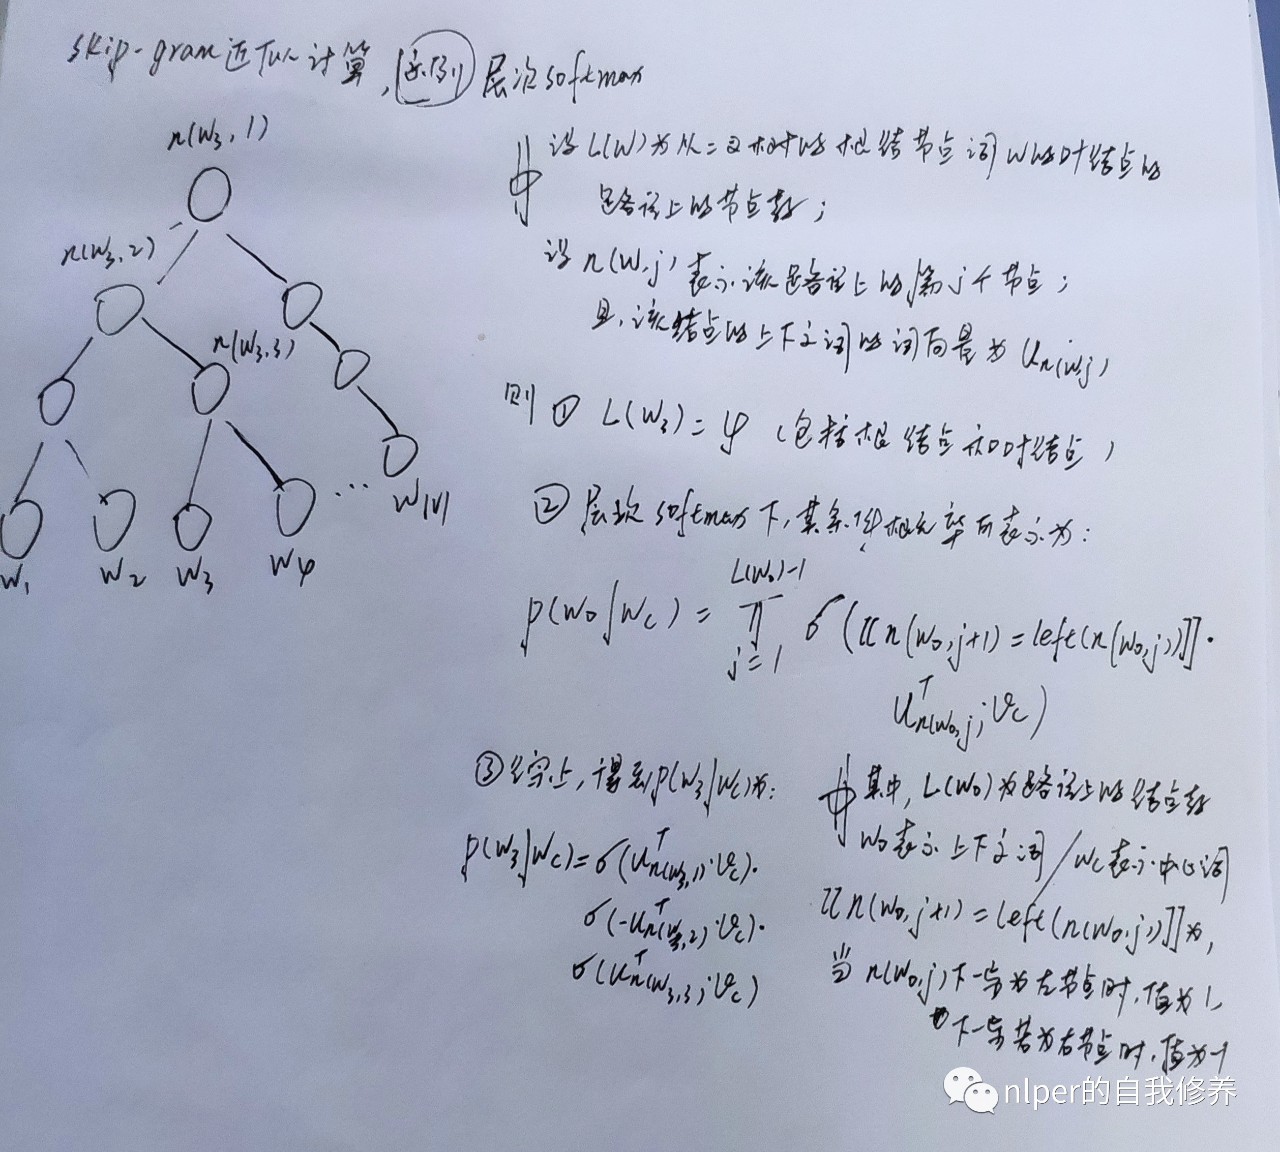 skip-gram近似计算,(示例)层次softmax
n(w3,1)
n(w3,2)
n(w3,3)
w1 w2 w3 w4 … w|V|
设L(w)为从二叉树的根结节点词w的叶结点的
路径上的节点数;
设n(w,j)表示该路径上的第j个节点;
且,该结点的上下文词的词向量为u_n(w,j)
则① L(w3)=4(包括根结点和叶结点)
②层次softmax下,其条件概率可表示为:
p(wo|wc)=∏_{j=1}^{L(wo)-1} σ([[n(wo,j+1)=left(n(wo,j))]]·
u^T_n(wo,j)·vc)
③综上,得到p(w3|wc)为:
p(w3|wc)=σ(u^T_n(w3,1)·vc)·
σ(-u^T_n(w3,2)·vc)·
σ(u^T_n(w3,3)·vc)
其中,L(wo)为路径上的结点数
wo表示上下文词/wc表示中心词
[[n(wo,j+1)=left(n(wo,j))]]为,
当n(wo,j)下一步为左节点时,值为1,
下一步若为右节点时,值为-1
nlper的自我修养